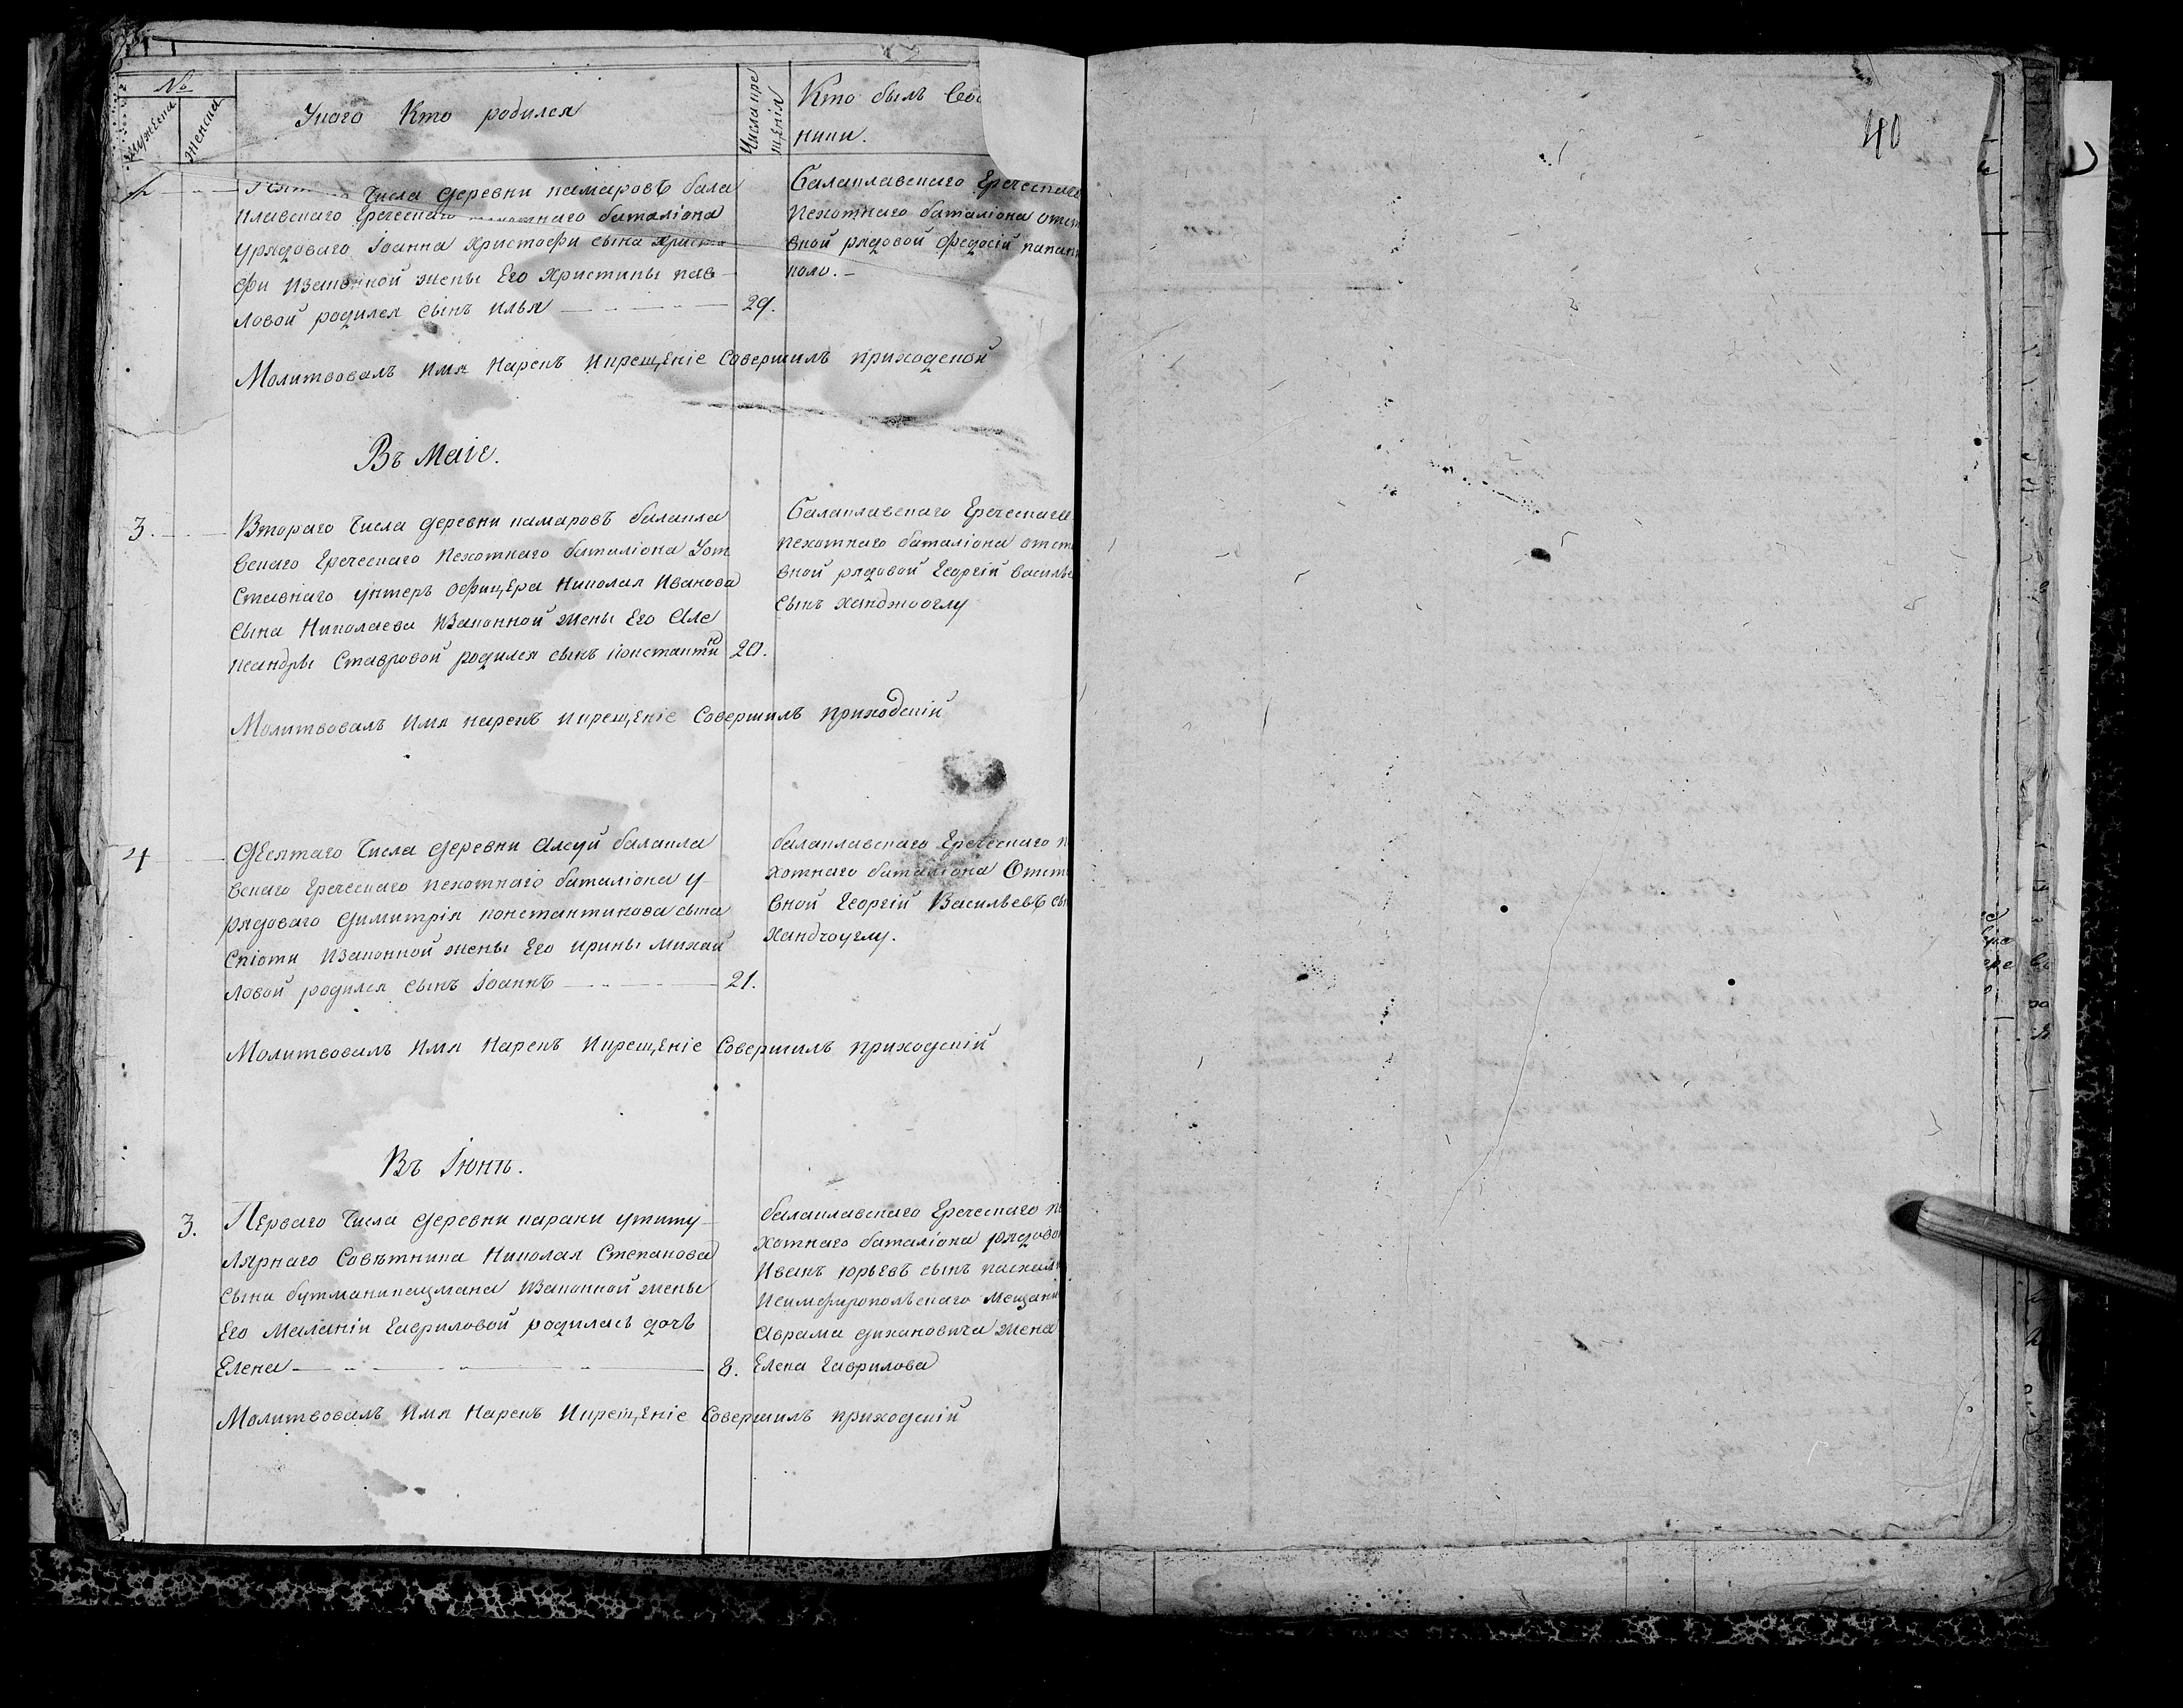 №
мужеска
женска
Укого Кто родился
Числа кре
щенія
Кто былъ
ники.
2
Числа деревни камаровъ бала
клавскаго Греческаго баталіона
урядоваго Іоанна Христофи сына Христо
фи изаконной жены Его Христины пав-
ловой родился сынъ илья
29.
балаклавскаго Греческаго
пехотнаго баталіона отст
вной рядовой Федосій папан
поло.-
Молитвовалъ имя Нарекъ икрещЕніе совершилъ приходской
Въ Маіе.
3.
Втораго числа деревни камаровъ балакла
вскаго Греческаго пехотнаго баталіона Уот
ставнаго унтеръ офицЕра Николая Иванова
сына Николаева изаконной жены Его але
ксандры Ставровой родился сынъ константинъ
20.
балаклавскаго Греческаго
пехотнаго баталіона отст
вной рядовой Георгій василье
сынъ ханджоглу
Молитвовалъ имя нарекъ икрещЕніе совершилъ приходскій
4
дЕсятаго числа деревни алсуй балакла
вскаго Греческаго пехотнаго баталіона у-
рядоваго димитрія константинова сына
Спіоти изаконной жены Его ирины михай
ловой родился сынъ Іоаннъ
21.
балаклавскаго Греческаго п
хотнаго баталіона Отст
вной Георгій Васильевъ сы
Хандчоуглу.
Молитвовалъ имя Нарекъ икрещЕніе совершилъ приходскій
Въ Іюнь.
3.
ПЕрваго числа деревни карани утиту-
лярнаго Совѣтника Николая Степанова
сына изаконной жены
Его Маланіи Гавриловой родилась дочь
Елена
8.
балаклавскаго Греческаго п
хотнаго баталіона рядово
Иванъ юрьевъ сынъ
исимферопольскаго мещани
аврама дихановича жена
Елена Гаврилова
Молитвовалъ имя Нарекъ икрещЕніе совершилъ приходскій
40